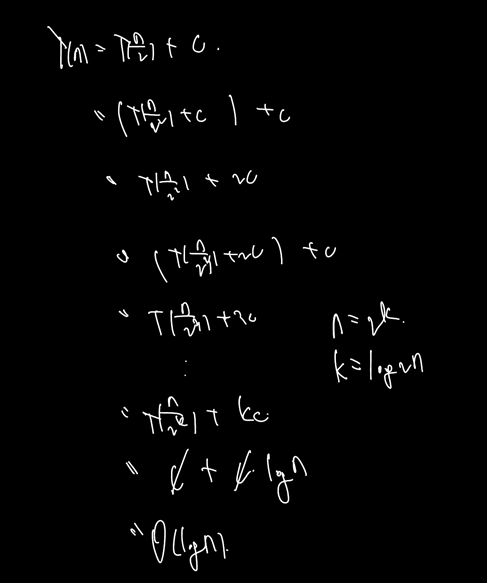 T(n) = T(n/2) + c.
= (T(n/2²) + c) + c
= T(n/2²) + 2c
= (T(n/2³) + 2c) + c
= T(n/2³) + 3c
n = 2^k.
⋮
k = log₂n
= T(n/2^k) + kc
= c + c·lgn
= O(lgn).